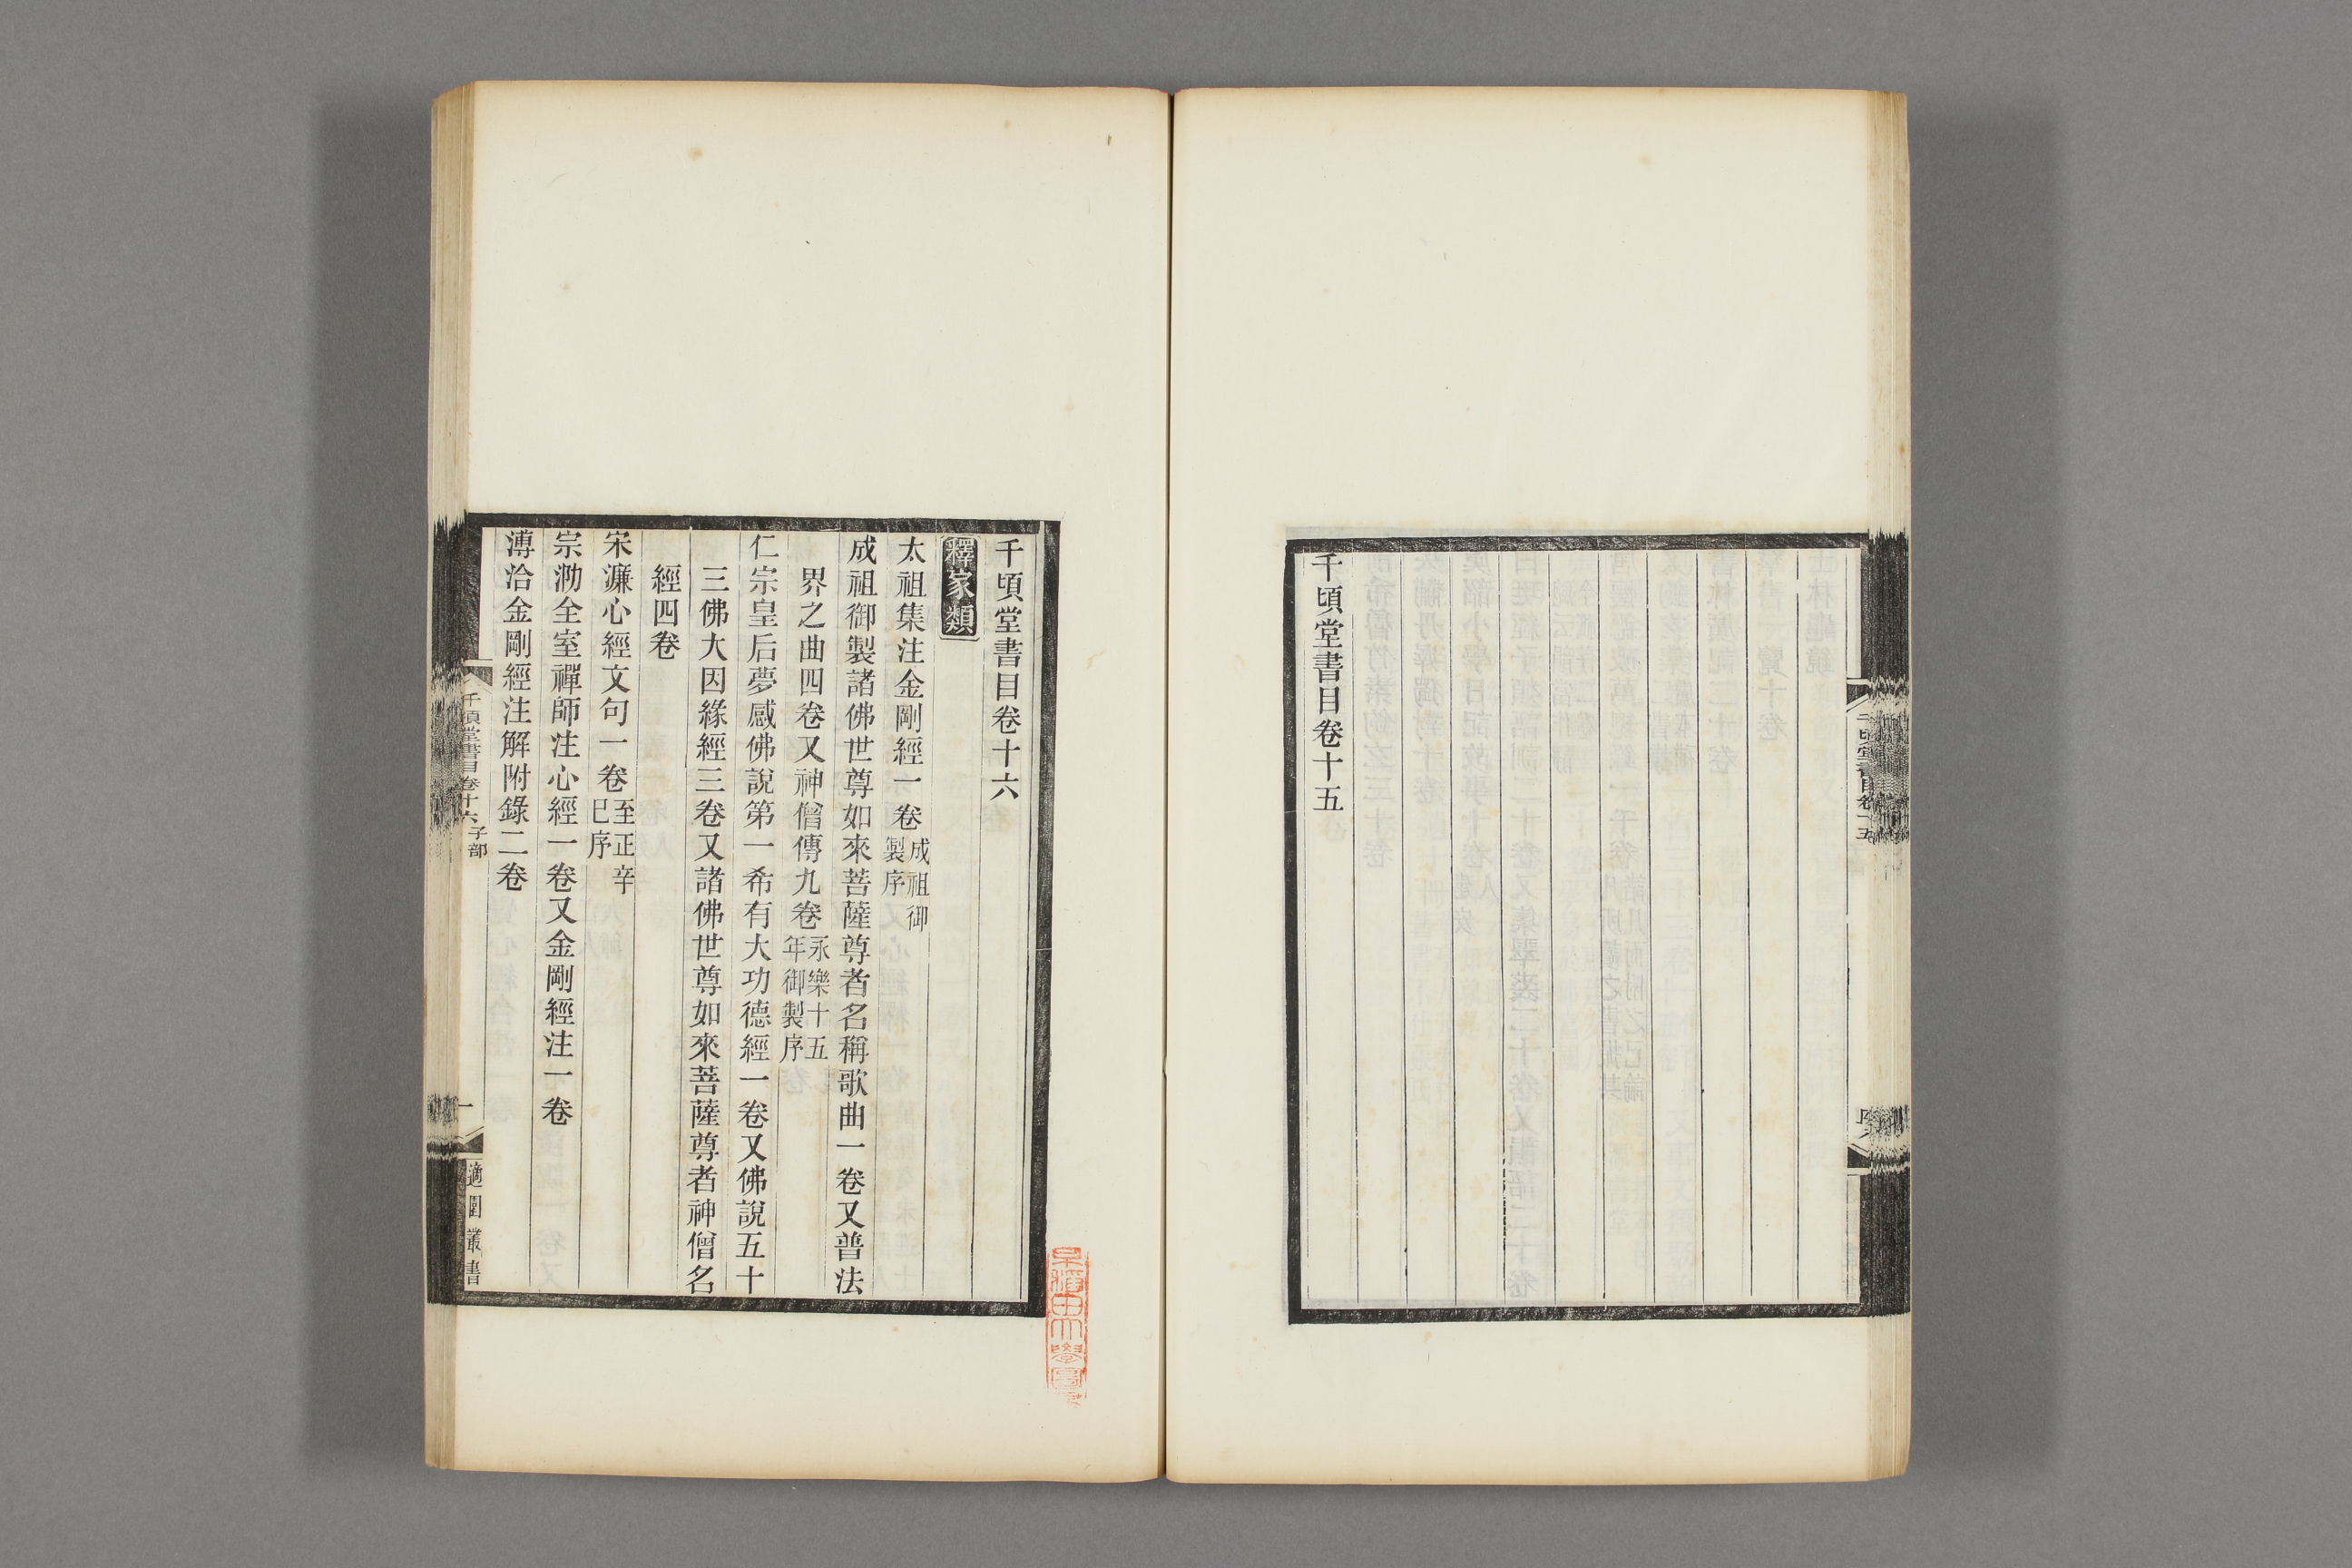 千頃堂書目卷十五
千頃堂書目卷十六
釋家類
太祖集注金剛經一卷成祖御製序
成祖御製諸佛世尊如來菩薩尊者名稱歌曲一卷又普法
界之曲四卷又神僧傳九卷永樂十五年御製序
仁宗皇后夢感佛說第一希有大功德經一卷又佛說五十
三佛大因緣經三卷又諸佛世尊如來菩薩尊者神僧名
經四卷
宋濂心經文句一卷至正辛巳序
宗泐全室禪師注心經一卷又金剛經注一卷
溥洽金剛經注解附錄二卷
千頃堂書目卷十六 子部
一
適園叢書